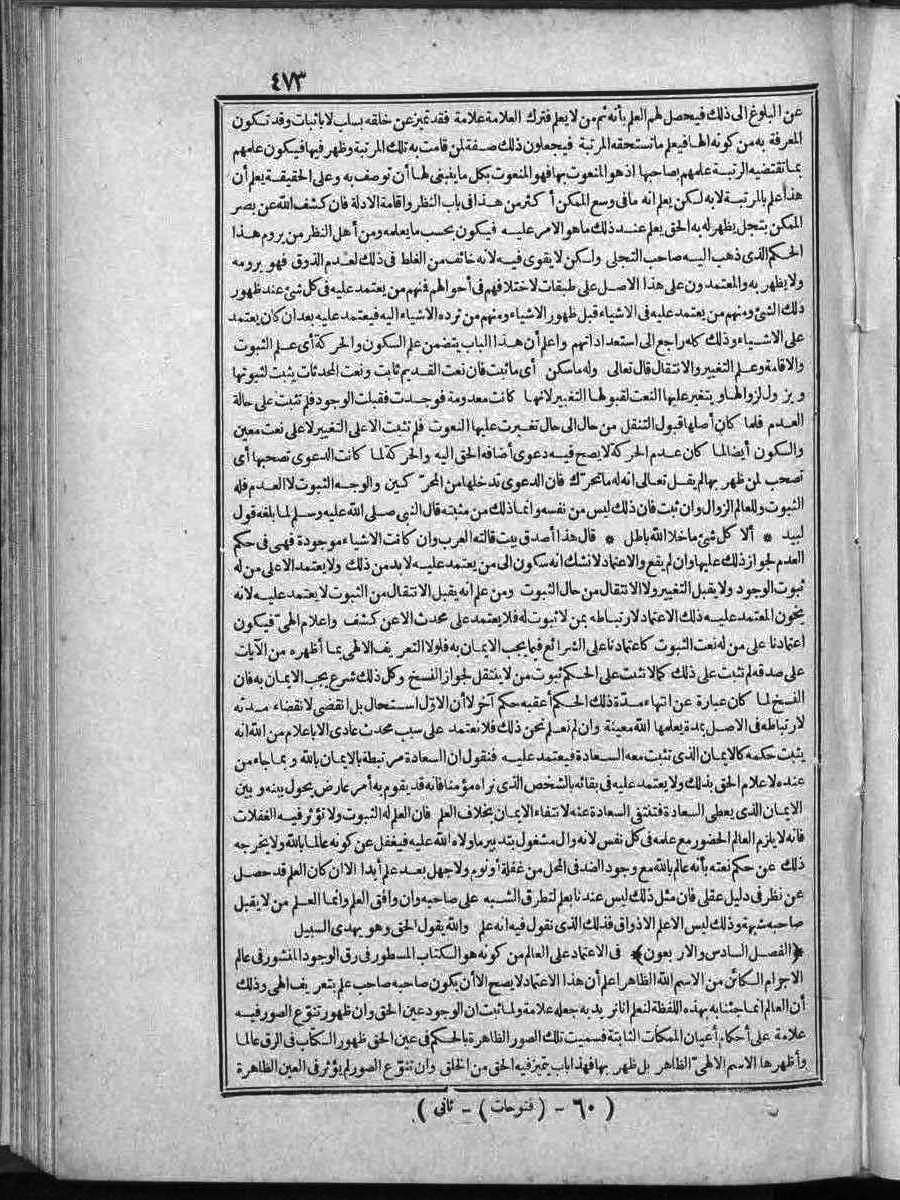 ٤٧٣
عن البلوغ الى ذلك فيحصل لهم العلم بأنه ثم من لا يعلم فترك العلامة علامة فقد تميز عن خلقه بسلب لا باثبات وقد تكون
المعرفة به من كونه الها فيعلم ما تستحقه المرتبة فيجعلون ذلك صفة لمن قامت به تلك المرتبة وظهر فيها فيكون علمهم
بما تقتضيه الرتبة علمهم بصاحبها اذ هو المنعوت بها فهو المنعوت بكل ما ينبغى لها أن توصف به وعلى الحقيقة يعلم أن
هذا علم بالمرتبة لا به لكن يعلم انه ما فى وسع الممكن أكثر من هذا فى باب النظر واقامة الادلة فان كشف الله عن بصر
الممكن بتجل يظهر له به الحق يعلم عند ذلك ما هو الامر عليه فيكون بحسب ما يعلمه ومن أهل النظر من يروم هذا
الحكم الذى ذهب اليه صاحب التجلى ولكن لا يقوى فيه لانه خائف من الغلط فى ذلك لعدم الذوق فهو يرومه
ولا يظهر به والمعتمدون على هذا الاصل على طبقات لاختلافهم فى أحوالهم فمنهم من يعتمد عليه فى كل شئ عند ظهور
ذلك الشئ ومنهم من يعتمد عليه فى الاشياء قبل ظهور الاشياء ومنهم من ترده الاشياء اليه فيعتمد عليه بعد ان كان يعتمد
على الاشياء وذلك كله راجع الى استعداداتهم واعلم أن هذا الباب يتضمن علم السكون والحركة أى علم الثبوت
والاقامة وعلم التغيير والانتقال قال تعالى وله ما سكن أى ما ثبت فان نعت القديم ثابت ونعت المحدثات يثبت لثبوتها
ويزول لزوالها ويتغير عليها النعت لقبولها التغيير لانها كانت معدومة فوجدت فقبلت الوجود فلم تثبت على حالة
العدم فلما كان أصلها قبول التنقل من حال الى حال تغيرت عليها النعوت فلم تثبت الا على التغيير لا على نعت معين
والسكون أيضا لما كان عدم الحركة لا يصح فيه دعوى أضافه الحق اليه والحركة لما كانت الدعوى تصحبها أى
تصحب لمن ظهر بها لم يقل تعالى انه له ما تحرّك فان الدعوى تدخلها من المحرّكين والوجه الثبوت لا العدم فله
الثبوت وللعالم الزوال وان ثبت فان ذلك ليس من نفسه وانما ذلك من مثبته قال النبى صلى الله عليه وسلم لما بلغه قول
لبيد * ألا كل شئ ما خلا الله باطل * قال هذا أصدق بيت قالته العرب وان كانت الاشياء موجودة فهى فى حكم
العدم لجواز ذلك عليها وان لم يقع والاعتماد لا نشك انه سكون الى من يعتمد عليه لا بد من ذلك ولا يعتمد الا على من له
ثبوت الوجود ولا يقبل التغيير ولا الانتقال من حال الثبوت ومن علم انه يقبل الانتقال من الثبوت لا يعتمد عليه لانه
يخون المعتمد عليه ذلك الاعتماد لارتباطه بمن لا ثبوت له فلا يعتمد على محدث الا عن كشف واعلام الهىّ فيكون
اعتمادنا على من له نعت الثبوت كاعتمادنا على الشرائع فيما يجب الايمان به فلولا التعريف الالهى بما أظهره من الآيات
على صدقه لم تثبت على ذلك كما لا تثبت على الحكم ثبوت من لا ينتقل لجواز الفسخ وكل ذلك شرع يجب الايمان به فان
الفسخ لما كان عبارة عن انتهاء مدّة ذلك الحكم أعقبه حكم آخر لا أن الاوّل استحال بل انقضى لانقضاء مدته
لارتباطه فى الاصل بمدة يعلمها الله معينة وان لم نعلم نحن ذلك فلا نعتمد على سبب محدث عادى الا باعلام من الله انه
يثبت حكمه كالايمان الذى تثبت معه السعادة فيعتمد عليه فنقول ان السعادة مرتبطة بالايمان بالله وبما جاء من
عنده لاعلام الحق بذلك ولا يعتمد عليه فى بقائه بالشخص الذى نراه مؤمنا فانه قد يقوم به أمر عارض يحول بينه وبين
الايمان الذى يعطى السعادة فتنتفى السعادة عنه لانتفاء الايمان بخلاف العلم فان العلم له الثبوت ولا تؤثر فيه الغفلات
فانه لا يلزم العالم الحضور مع علمه فى كل نفس لانه وال مشغول بتدبير ما ولاه الله عليه فيغفل عن كونه عالما بالله ولا يخرجه
ذلك عن حكم نعته بأنه عالم بالله مع وجود الضد فى المحل من غفلة أو نوم ولا جهل بعد علم أبدا الا ان كان العلم قد حصل
عن نظر فى دليل عقلى فان مثل ذلك ليس عندنا بعلم لتطرق الشبه على صاحبه وان وافق العلم وانما العلم من لا يقبل
صاحبه شبهة وذلك ليس الا علم الاذواق فذلك الذى نقول فيه انه علم والله يقول الحق وهو يهدى السبيل
﴿الفصل السادس والاربعون﴾ فى الاعتماد على العالم من كونه هو الكتاب المسطور فى رق الوجود المنشور فى عالم
الاجرام الكائن من الاسم الله الظاهر اعلم أن هذا الاعتماد لا يصح الا أن يكون صاحبه صاحب علم بتعريف الهى وذلك
أن العالم انما جئنا به بهذه اللفظة لنعلم انا نريد به جعله علامة ولما ثبت ان الوجود عين الحق وان ظهور تنوّع الصور فيه
علامة على أحكام أعيان الممكنات الثابتة فسميت تلك الصور الظاهرة بالحكم فى عين الحق ظهور الكتاب فى الرق عالما
وأظهرها الاسم الالهىّ الظاهر بل ظهر بها فهذا باب يتميز فيه الحق من الخلق وان تنوّع الصور لم يؤثر فى العين الظاهرة
( ٦٠ - (فتوحات) - ثانى )